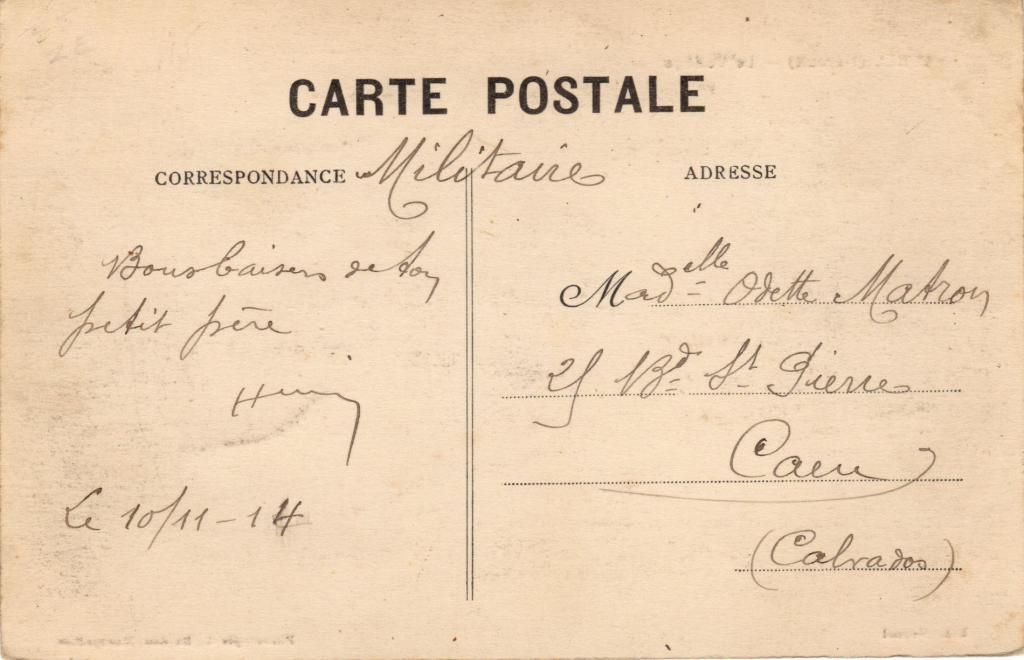 CARTE POSTALE
CORRESPONDANCE Militaire
ADRESSE
Bons baisers de ton
petit père
Henry
Le 10/11-14
Madelle Odette Matron
25 Bd St Pierre
Caen
(Calvados)